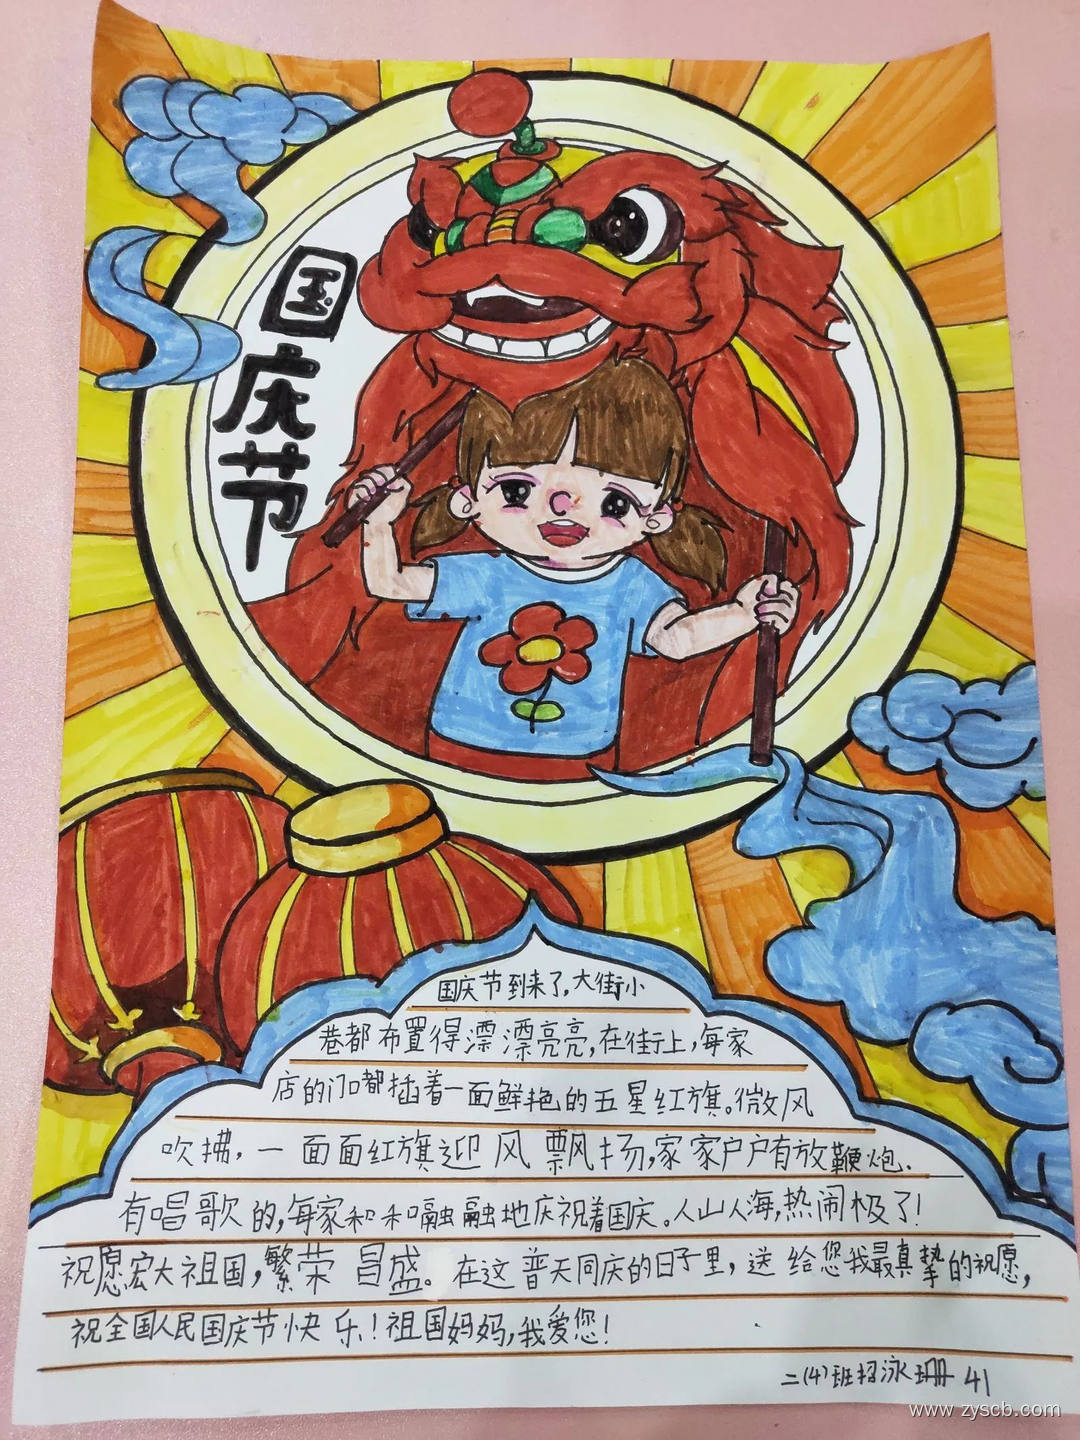 国庆节
国庆节到来了,大街小
巷都布置得漂漂亮亮,在街上,每家
店的门口都插着一面鲜艳的五星红旗。微风
吹拂,一面面红旗迎风飘扬,家家户户有放鞭炮.
有唱歌的,每家和禾嗝融融地庆祝着国庆。人山人海,热闹极了!
祝愿宏大祖国,繁荣昌盛。在这普天同庆的日子里,送给您我最真挚的祝愿,
祝全国人民国庆节快乐!祖国妈妈,我爱您!
二(4)班 泳珊 41
www.zyscb.com